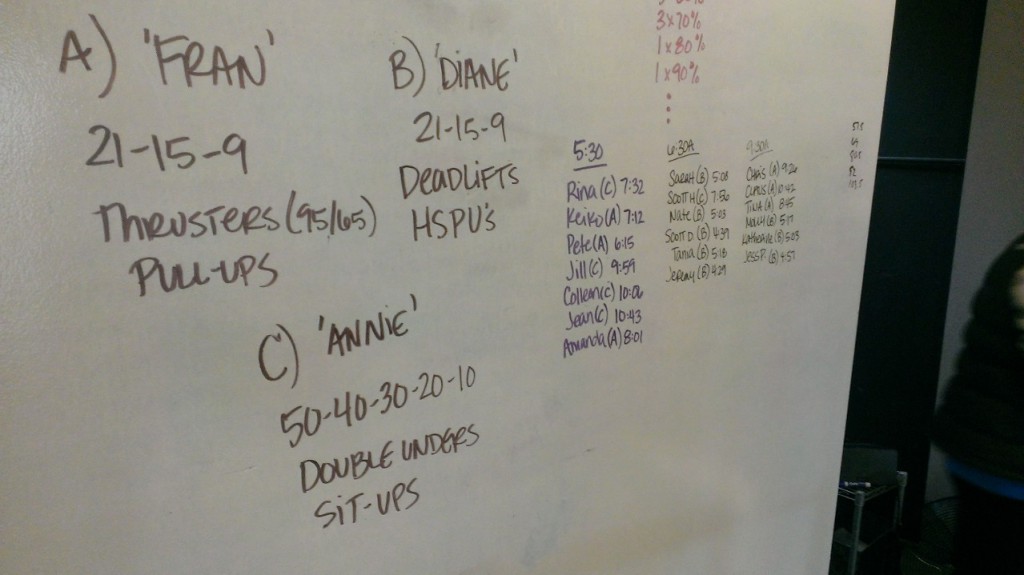 A) 'FRAN'
21-15-9
THRUSTERS (95/65)
PULL-UPS
B) 'DIANE'
21-15-9
DEADLIFTS
HSPU'S
C) 'ANNIE'
50-40-30-20-10
DOUBLE UNDERS
SIT-UPS
3x70%
1x80%
1x90%
5:30
Rina (C) 7:32
Keiko (A) 7:12
Pete (A) 6:15
Jill (C) 9:59
Colleen (C) 10:06
Jean (C) 10:43
Amanda (A) 8:01
6:30A
Sarah (B) 5:08
Scott H (C) 7:56
Nate (B) 5:03
Scott D (B) 4:39
Tania (B) 5:18
Jeremy (B) 4:29
9:30A
Chris (A) 9:26
(A) 10:42
Tina (A) 8:45
(B) 5:17
Katherine (B) 5:03
Jess P. (B) 4:57